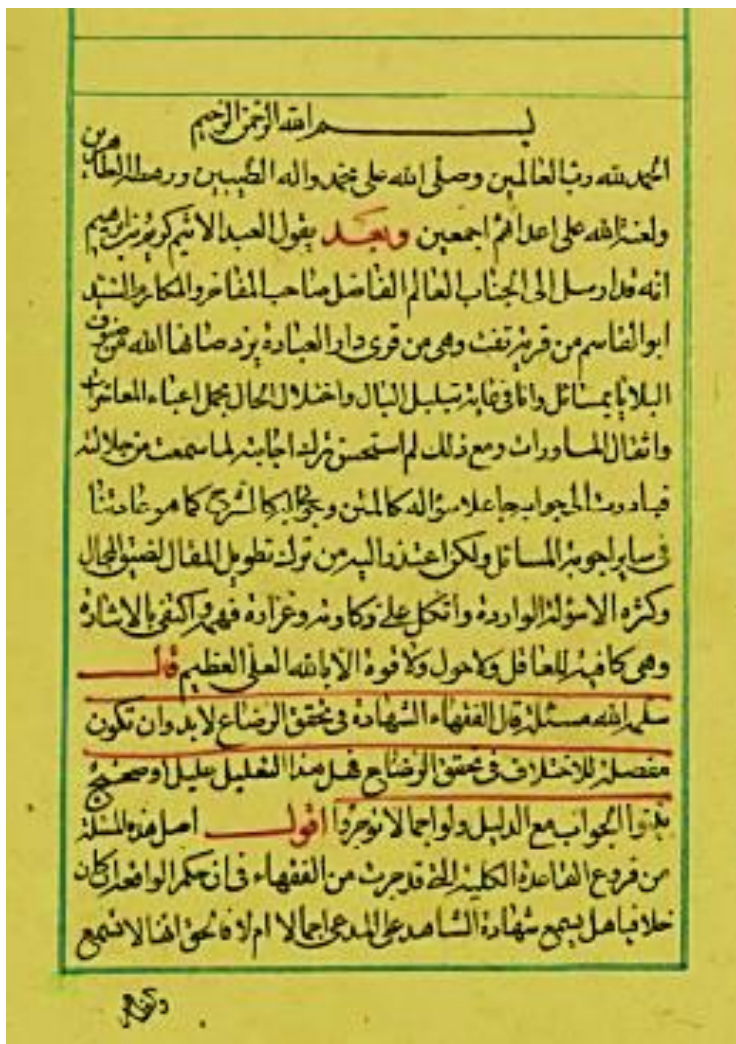 بسم الله الرحمن الرحيم
الحمد لله رب العالمين وصلى الله على محمد واله الطيبين ورهطه الطاهرين
ولعنة الله على اعدائهم اجمعين وبعد يقول العبد الاثيم كريم بن ابرهيم
انه قد ارسل الى الجناب العالم الفاضل صاحب المفاخر والمكارم السيد
ابو القاسم من قرية تفت وهى من قرى دار العبادة يزد صانها الله عن صروف
البلايا بمسائل وانا فى غاية تبلبل البال واختلال الحال بحمل اعباء المعاشرات
واثقال المساورات ومع ذلك لم استحسن ترك اجابته لما سمعت من جلالته
فبادرت الى جوابه جاعلا سؤاله كالمتن وجوابى كالشرح كما هو عادتنا
فى ساير اجوبة المسائل ولكن اعتذر اليه من ترك تطويل المقال لضيق المجال
وكثره الاسولة الواردة واتكل على ذكاوته وغزارة فهمه واكتفى بالاشارة
وهى كافية للعاقل ولا حول ولا قوة الا بالله العلى العظيم قال
سلمه الله مسئلة قال الفقهاء الشهادة فى تحقق الرضاع لابد وان تكون
مفصلة للاختلاف فى تحقق الرضاع فهل هذا التعليل عليل او صحيح
بينوا الجواب مع الدليل ولو اجمالا توجروا اقول اصل هذه المسئلة
من فروع القاعدة الكلية التى قد جرت من الفقهاء فى ان حكم الواقعة ان كان
خلافيا هل يسمع شهادة الشاهد على المدعى اجمالا ام لا فالحق انها لا تسمع